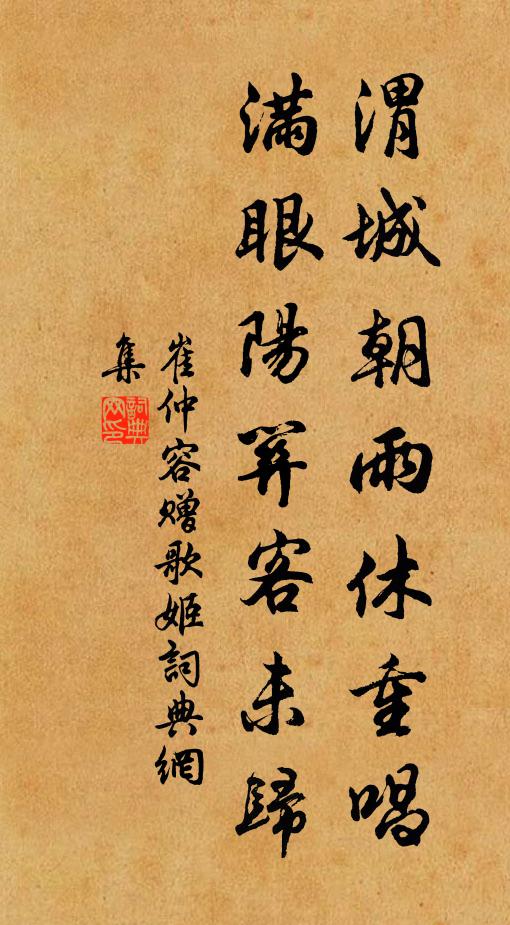 渭城朝雨休重唱
滿眼陽關客未歸
崔仲容贈歌姬詞典網
集
詞典網印